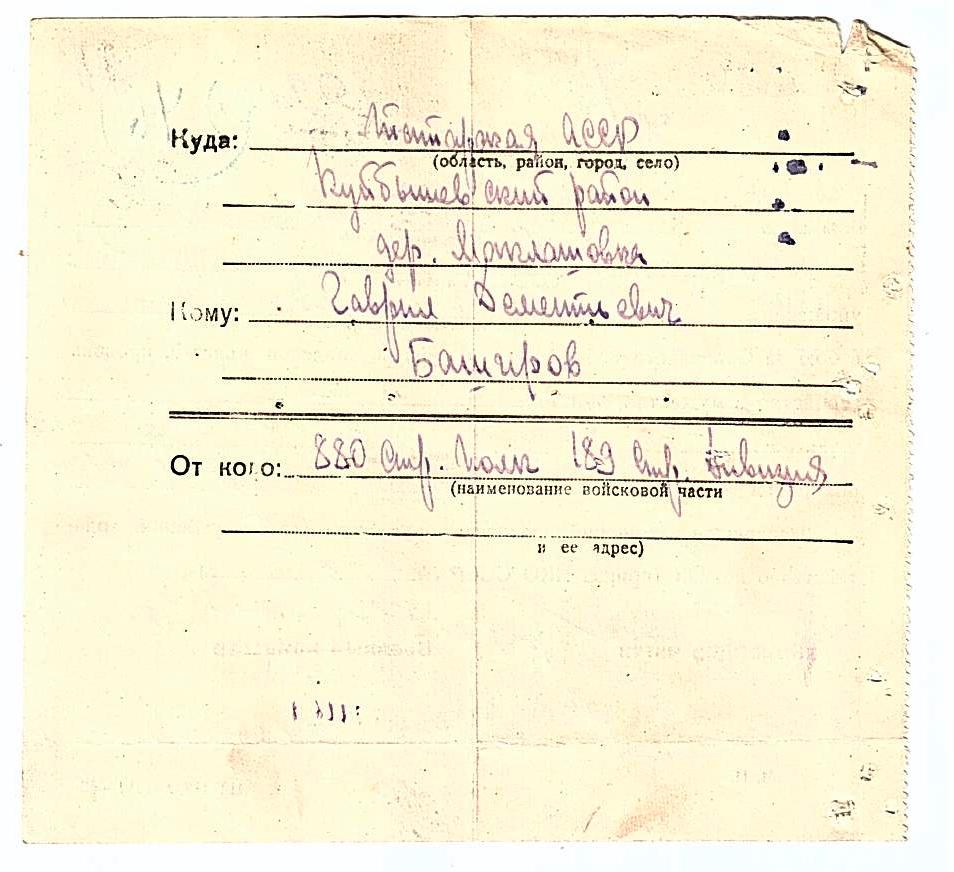 Куда: Татарская АССР
(область, район, город, село)
Куйбышевский район
дер. Маклашовка
Кому: Гаврил Дементьевич
Башкиров
От кого: 880 Стр. Полк 189 Стр. Дивизия
(наименование войсковой части
и ее адрес)